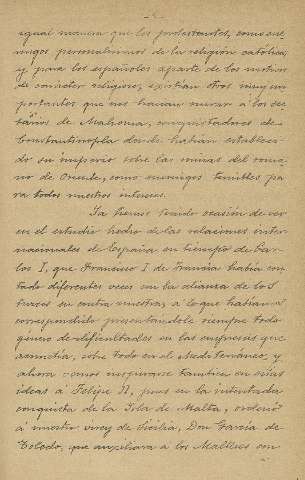 igual manera que los protestantes, como ene
migos personalísimos de la religión católica,
y para los españoles aparte de los motivos
de carácter religioso, existían otros muy im
portantes que nos hacían mirar á los sec
tarios de Mahoma, conquistadores de
Constantinopla donde habían estableci
do su imperio sobre las ruinas del roma
no de Oriente, como enemigos temibles pa
ra todos nuestros intereses.
Ya hemos tenido ocasión de ver
en el estudio hecho de las relaciones inter
nacionales de España en tiempo de Car
los I, que Francisco I de Francia había con
tado diferentes veces con la alianza de los
turcos en contra nuestra, á lo que habían
correspondido presentándole siempre todo
género de dificultades en las empresas que
acometía, sobre todo en el Mediterráneo, y
ahora vemos inspirarse también en estas
ideas á Felipe II, pues en la intentada
conquista de la Isla de Malta, ordenó
á nuestro virey de Sicilia, Don García de
Toledo, que auxiliara á los Malteses con